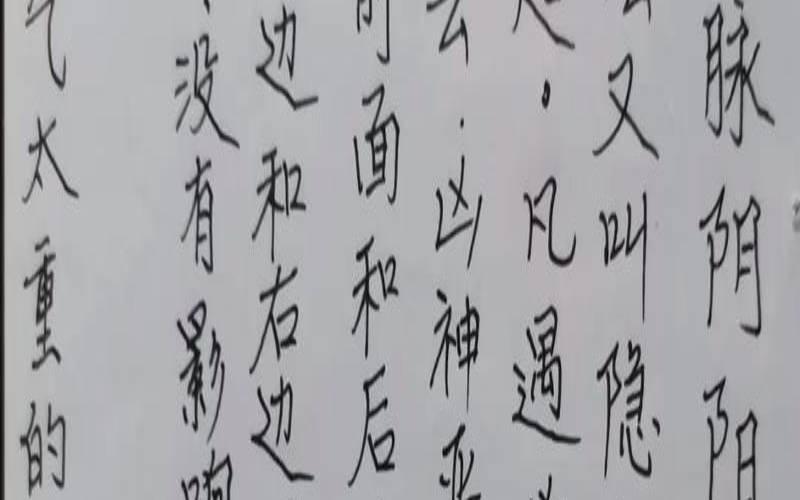 脉阴阴
又叫隐
·凡遇
·凶神
前面和后
边和右边
没有影响
气太重的